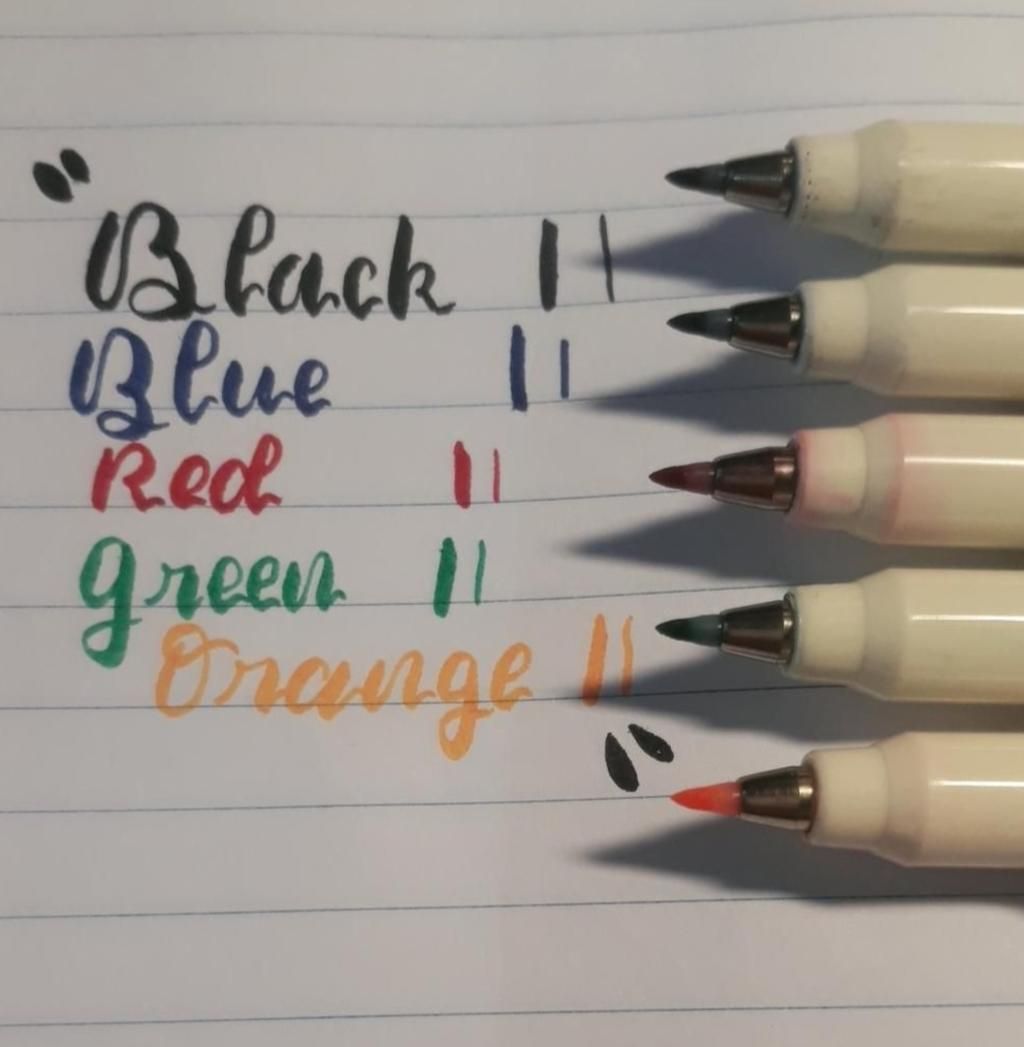 "Black ||
Blue ||
Red ||
green ||
Orange ||"